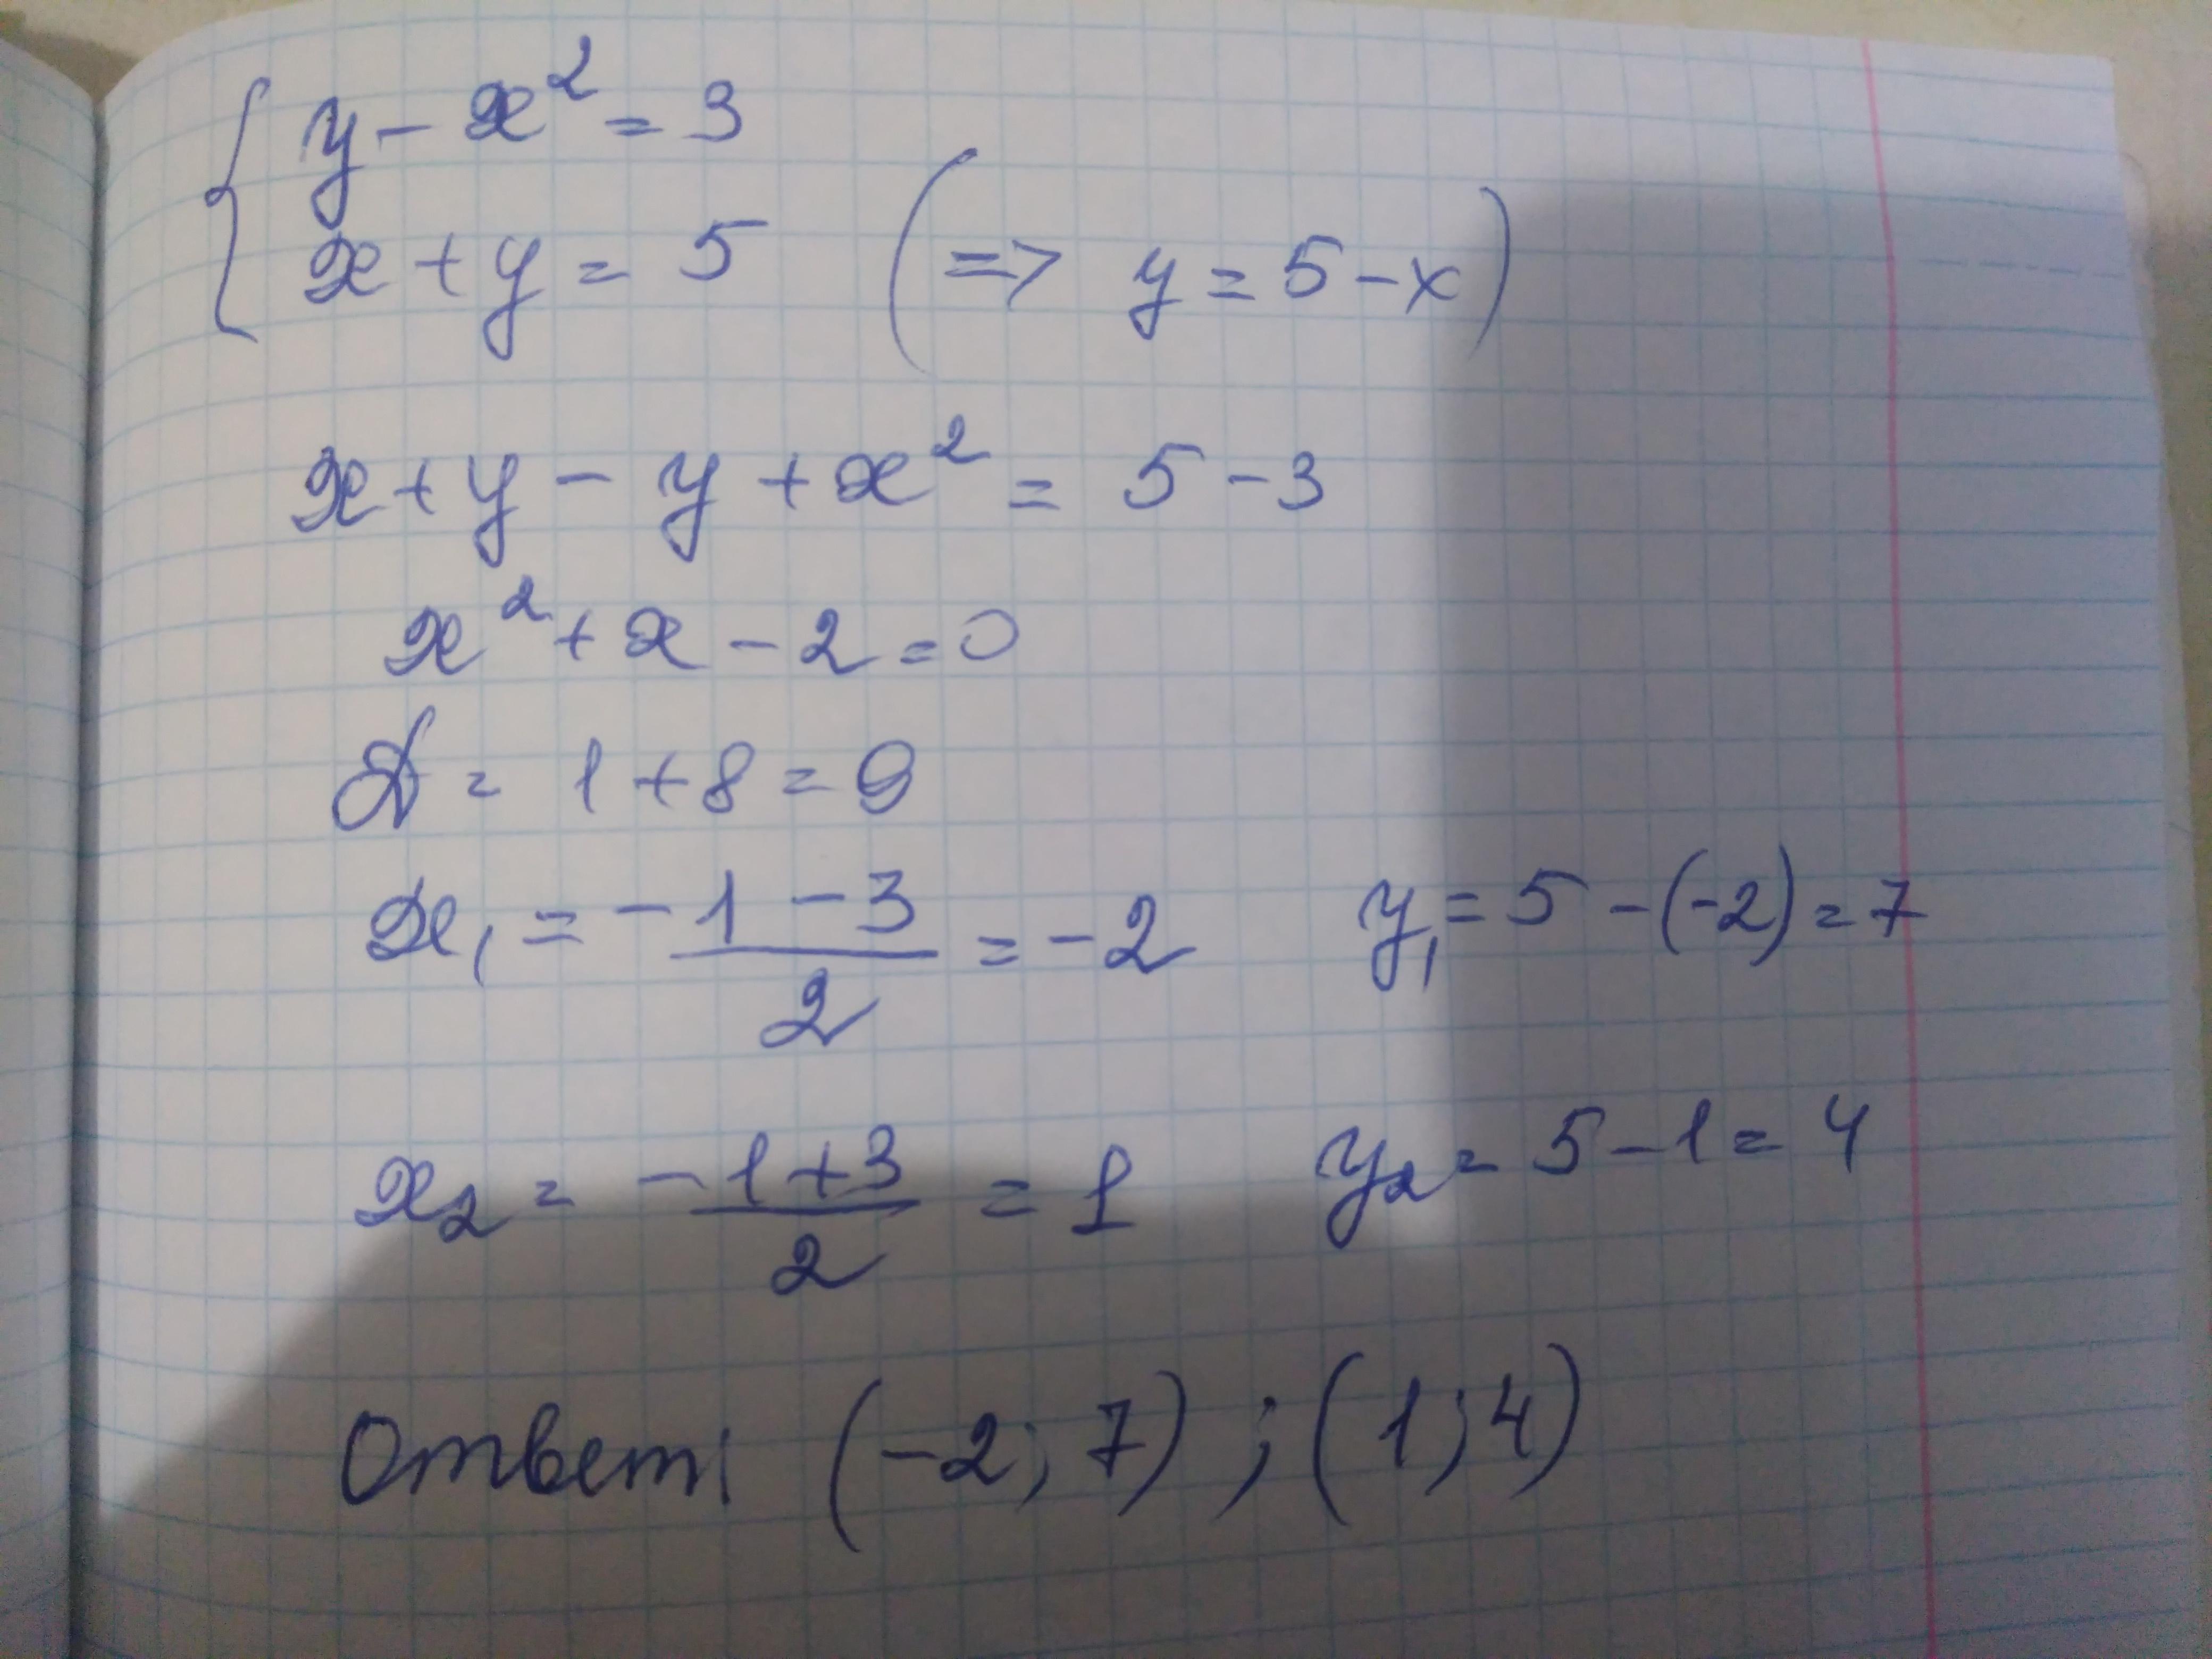 y - x² = 3
x + y = 5 (=> y = 5 - x)
x + y - y + x² = 5 - 3
x² + x - 2 = 0
D = 1 + 8 = 9
x₁ = (-1 - 3)/2 = -2 y₁ = 5 - (-2) = 7
x₂ = (-1 + 3)/2 = 1 y₂ = 5 - 1 = 4
Ответ: (-2; 7) ; (1; 4)